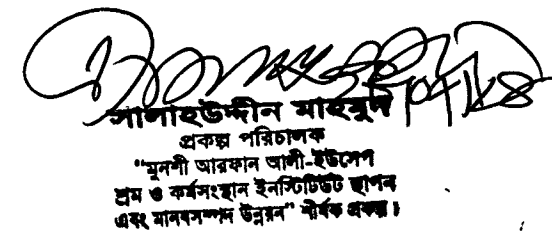 সালাহউদ্দীন মাহবুব
প্রকল্প পরিচালক
"মুনশী আরফান আলী-ইউসেপ
শ্রম ও কর্মসংস্থান ইনস্টিটিউট স্থাপন
এবং মানবসম্পদ উন্নয়ন" শীর্ষক প্রকল্প।